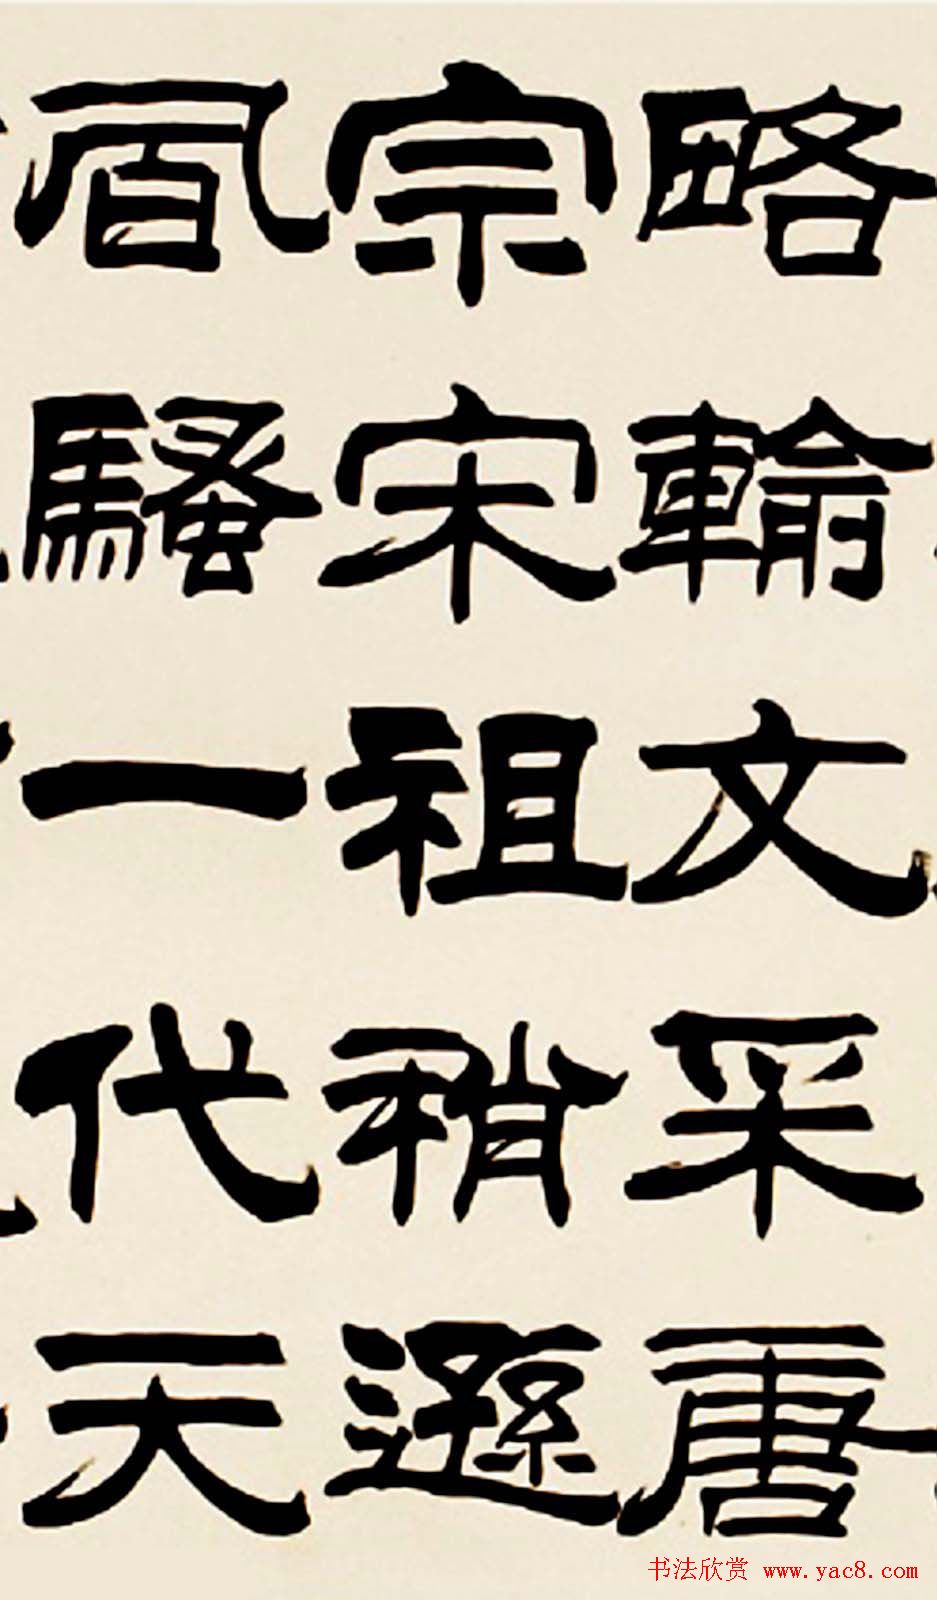 略輸文采唐
宗宋祖稍遜
風騷一代天
书法欣赏 www.yac8.com